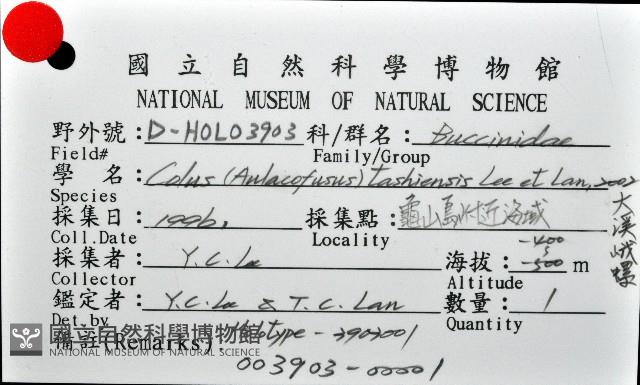 國立自然科學博物館
NATIONAL MUSEUM OF NATURAL SCIENCE
野外號：D-HOLO3903 科/群名：Buccinidae
Field# Family/Group
學 名：Colus (Aulacofusus) tashiensis Lee et Lan, 2002
Species
大溪峨螺
採集日：1996, 採集點：龜山島附近海域
Coll.Date Locality
採集者：Y.C. Lee 海拔：-400 ~ -500 m
Collector Altitude
鑑定者：Y.C. Lee & T.C. Lan 數量：1
Det.by Quantity
備註(Remarks) Holotype-3903001
國立自然科學博物館
NATIONAL MUSEUM OF NATURAL SCIENCE
003903-00001